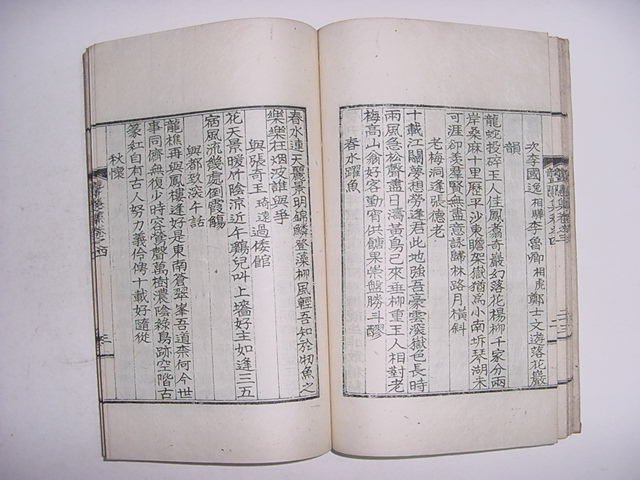 次李國逸 相驊 李魯卿 相虎 鄭士文遊落花巖
韻
龍蛇投碎王人住鳳翥奇巖幻落花楊柳千家分兩
岸桑麻十里歷平沙東瞻架嶽猶爲小南坼琴湖未
可涯卻羨羣賢無盡意詠歸林路月橫斜
老梅洞逢張德老
十載江關夢想勞逢君此地強吾豪雲深嶽色長時
雨風急松聲盡日濤黃鳥己來垂柳重王人相對老
梅高山翁好客勤宵供糖果柴盤勝斗醪
春水躍魚
春水連天麗景明錦鱗登藻柳風輕吾知於牣魚之
樂樂在烟波誰與爭
與張奇玉 琦逸 過倭館
花天景暖竹陰涼近午鷄兒叫上墻好主如逢三五
宿風流幾處倒霞觴
與都玖淡午話
龍樵再與鳳樓逢好是東南蒼翠峯吾道柰何今世
事同儕無復少時容鶯聲萬樹濃陰綠鳥跡空階古
篆紅自有古人努力義伶俜十載好隨從
秋懷